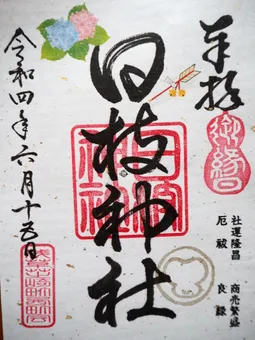 奉拝
御縁日
社運隆昌 商売繁盛
厄祓 良縁
日枝神社
令和四年六月十五日